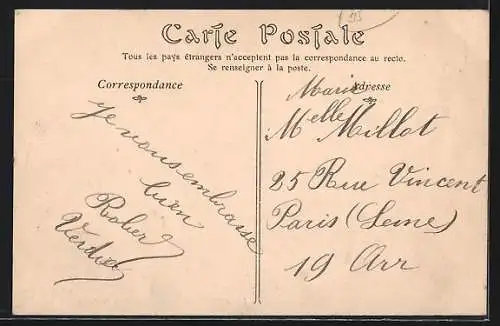 Carte Postale
Tous les pays étrangers n'acceptent pas la correspondance au recto.
Se renseigner à la poste.
Correspondance
Adresse
je vous embrasse
bien
Robert
Marie
Melle Millot
25 Rue Vincent
Paris (Seine)
19 Arr